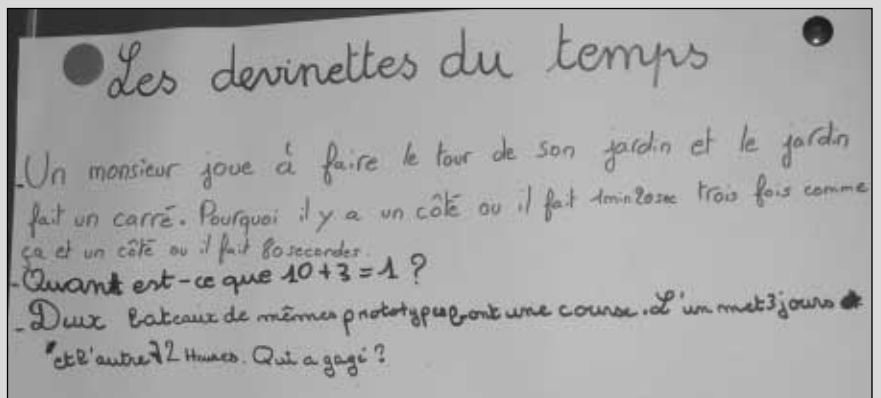 Les devinettes du temps
-Un monsieur joue à faire le tour de son jardin et le jardin
fait un carré. Pourquoi il y a un côté ou il fait 1min20sec trois fois comme
ça et un côté ou il fait 80 secondes.
-Quant est-ce que 10+3=1 ?
-Deux bateaux de mêmes prototypes font une course. L'un met 3 jours
et l'autre 72 Heures. Qui a gagé ?